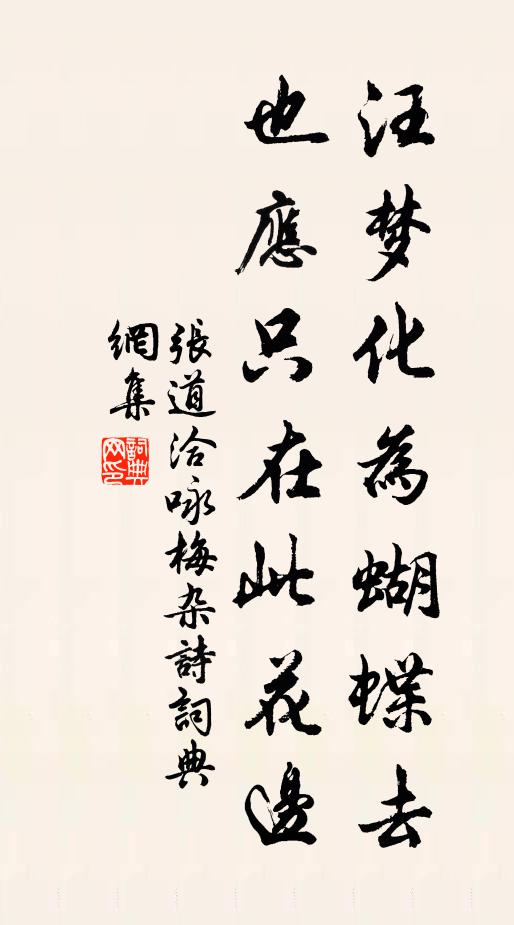 汪梦化為蝴蝶去
也應只在此花邊
張道洽咏梅杂詩詞典
網集
詞典網印